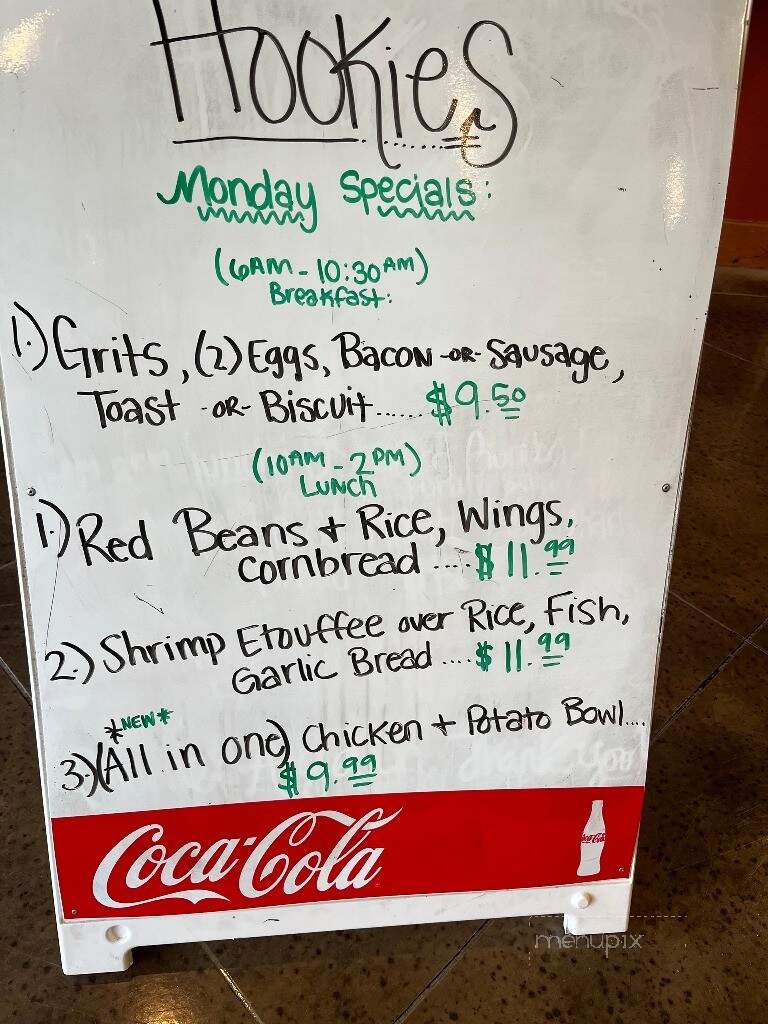 Hookies
Monday Specials:
(6AM - 10:30AM)
Breakfast:
1.) Grits, (2) Eggs, Bacon -OR- Sausage,
Toast -OR- Biscuit...... $9.50
(10AM - 2PM)
Lunch
1.) Red Beans + Rice, Wings,
Cornbread ....$11.99
2.) Shrimp Etouffee over Rice, Fish,
Garlic Bread ....$11.99
*NEW*
3.) (All in one) Chicken + Potato Bowl....
$9.99
Coca-Cola
Coca-Cola
menupix